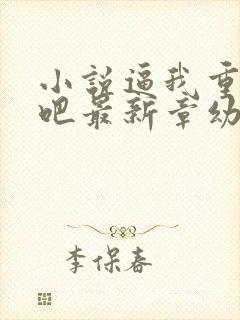 小说逼我重
吧最新章幼
李保春